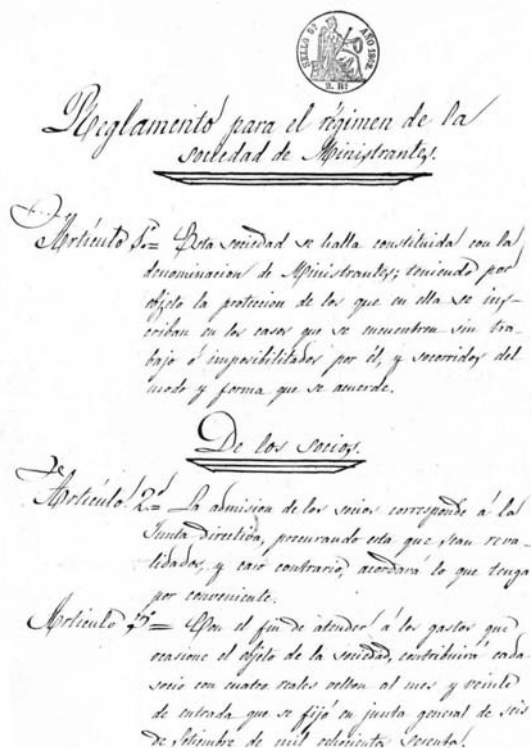 SELLO 9º AÑO 1862.
2. Rs
Reglamento para el régimen de la
sociedad de Ministrantes.
Artículo 1º = Esta sociedad se halla constituida con la
denominacion de Ministrantes; teniendo por
objeto la proteccion de los que en ella se ins-
criban en los casos que se encuentren sin tra-
bajo ó imposibilitados por él, y socorridos del
modo y forma que se acuerde.
De los socios.
Artículo 2º = La admision de los socios corresponde á la
Junta directiva, procurando esta que sean reva-
lidados, y caso contrario, acordará lo que tenga
por conveniente.
Artículo 3º = Con el fin de atender á los gastos que
ocasione el objeto de la sociedad, contribuirá cada
socio con cuatro reales vellon al mes y veinte
de entrada que se fijó en junta general de seis
de Setiembre de mil ochocientos sesenta.